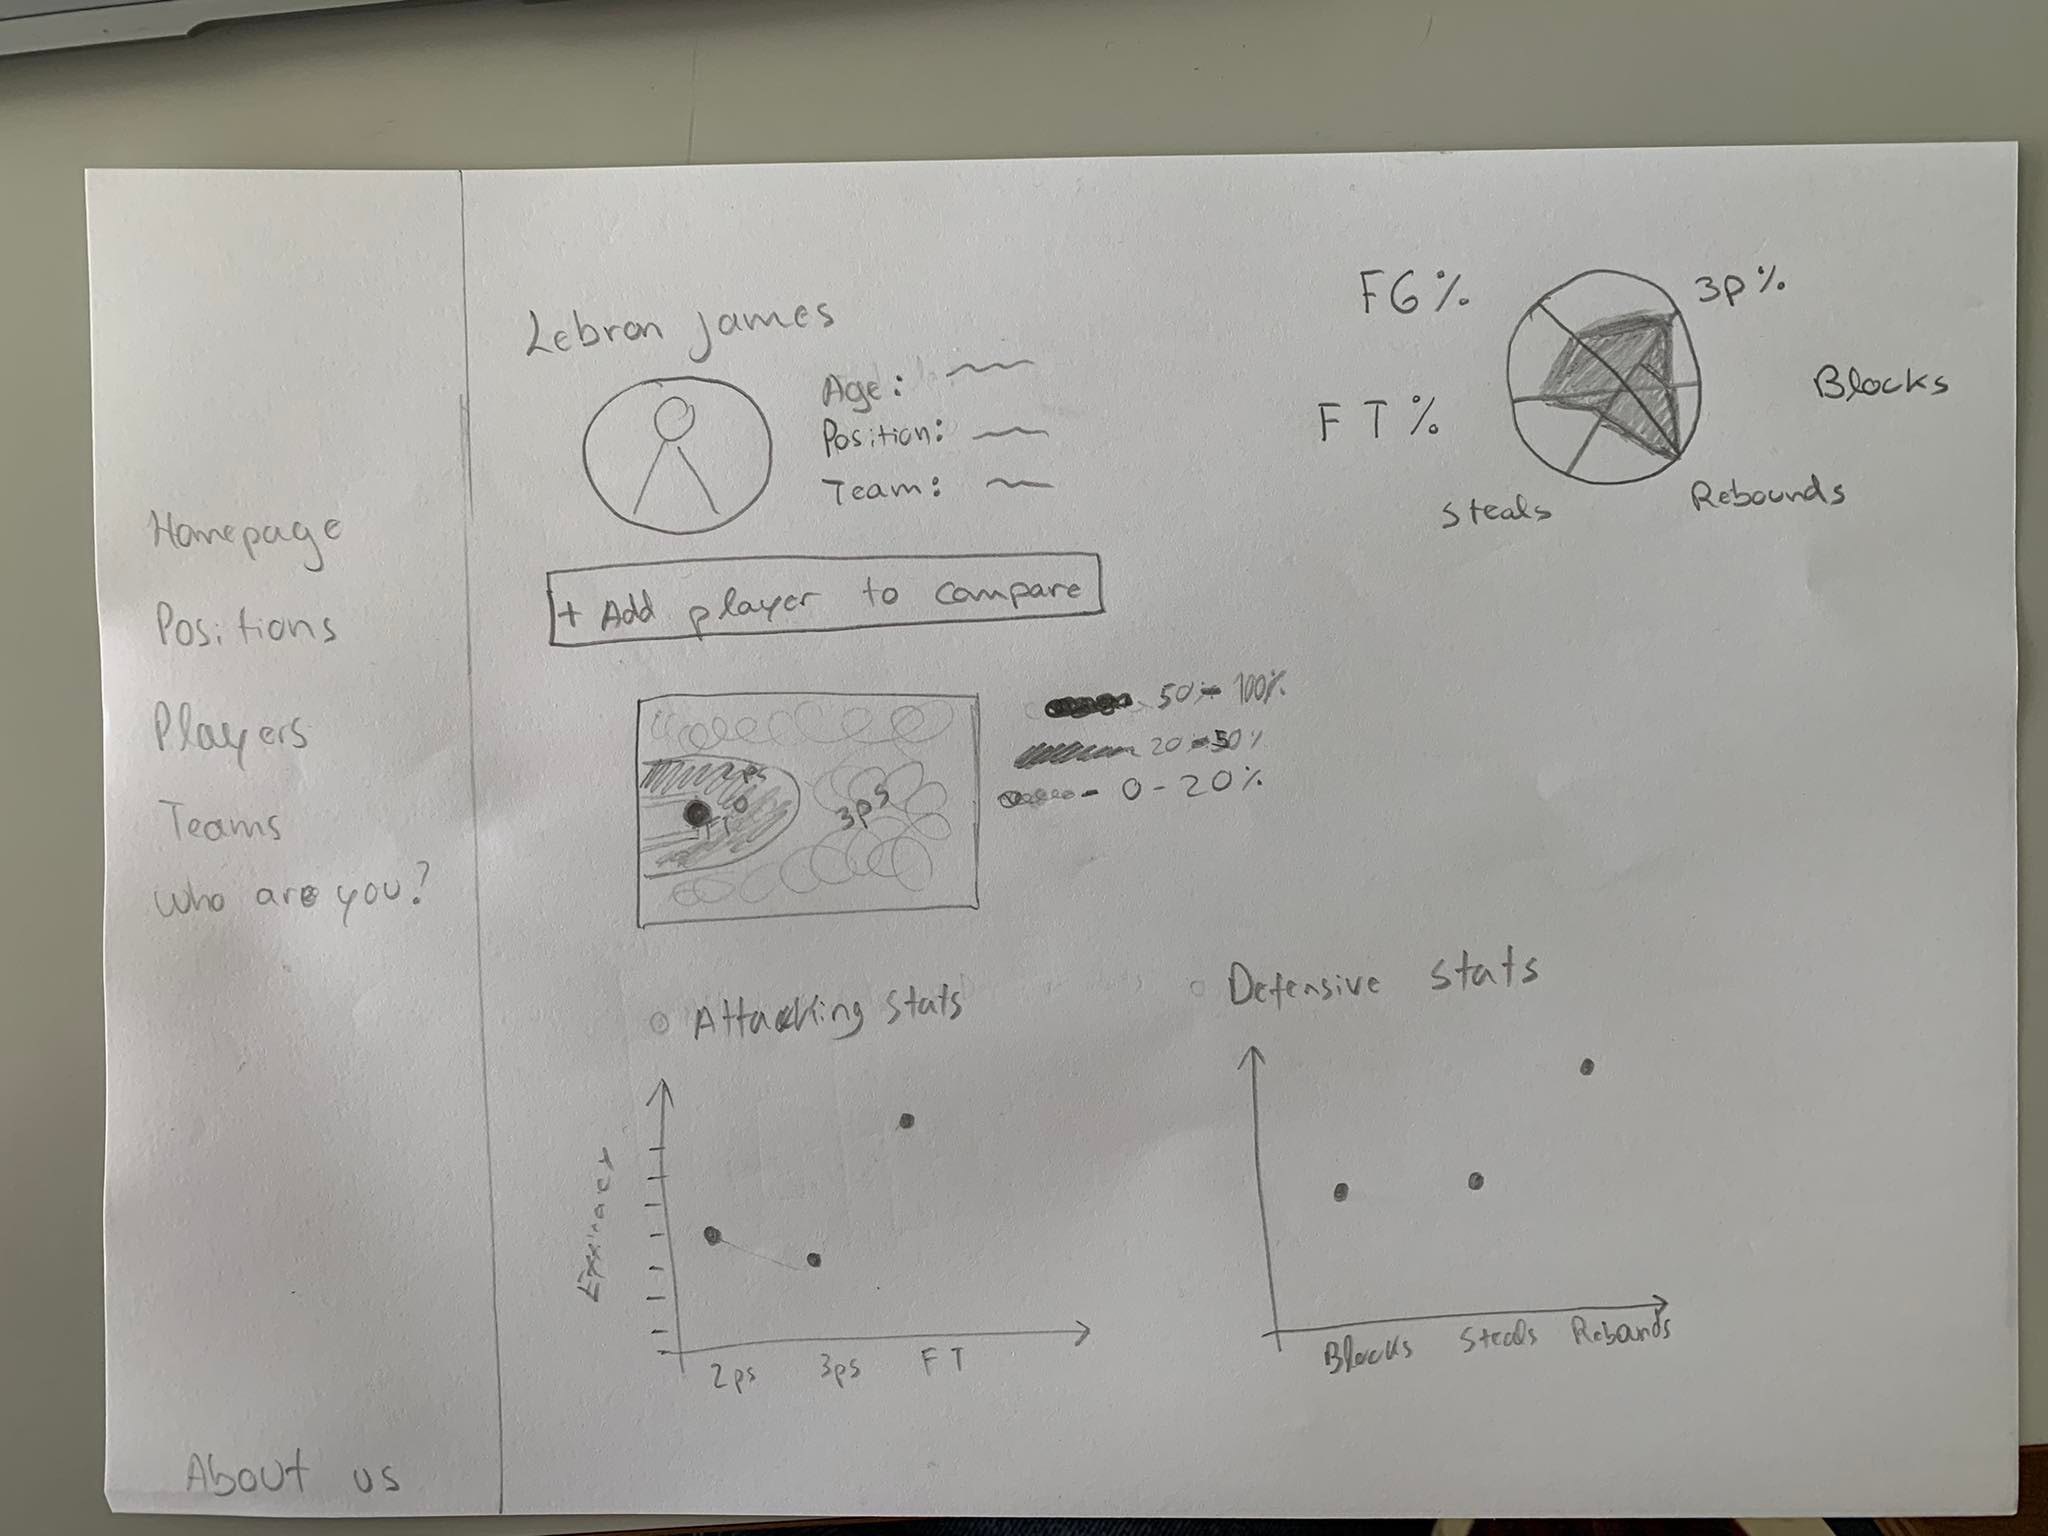 Homepage
Positions
Players
Teams
who are you?
About us
Lebron james
Age:
Position:
Team:
+ Add player to compare
FG%
3p%
FT%
Blocks
Steals
Rebounds
50%- 100%
20-50%
- 0-20%
2ps
FT
3ps
Attacking stats
2ps 3ps FT
Defensive stats
Blocks Steals Rebounds